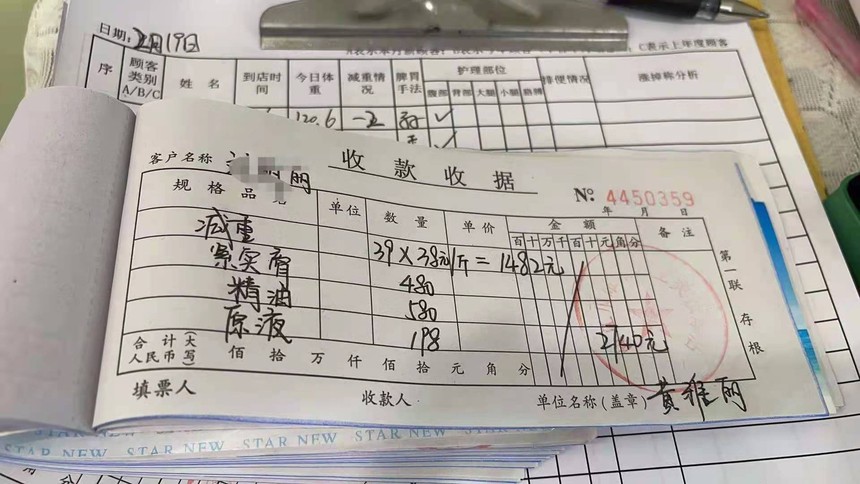 日期: 2月19日
C表示上年度顾客
序 顾客类别 A/B/C 姓名 到店时间 今日体重 减重情况 脾胃手法 护理部位 腹部 背部 大腿 小腿 胳膊 排便情况 涨掉称分析
120.6
收款收据
客户名称 丽
№: 4450359
年 月 日
规格品 单位 数量 单价 金额 备注
百 十 万 千 百 十 元 角 分
减重 39×38元/斤=1482元
紧实膏 480
精油 580
原液 198
2740元
合计(大写)人民币 佰 拾 万 仟 佰 拾 元 角 分
第一联 存根
填票人 收款人 单位名称(盖章) 黄雅丽
STAR NEW STAR NEW STAR NEW STAR NEW STAR NEW